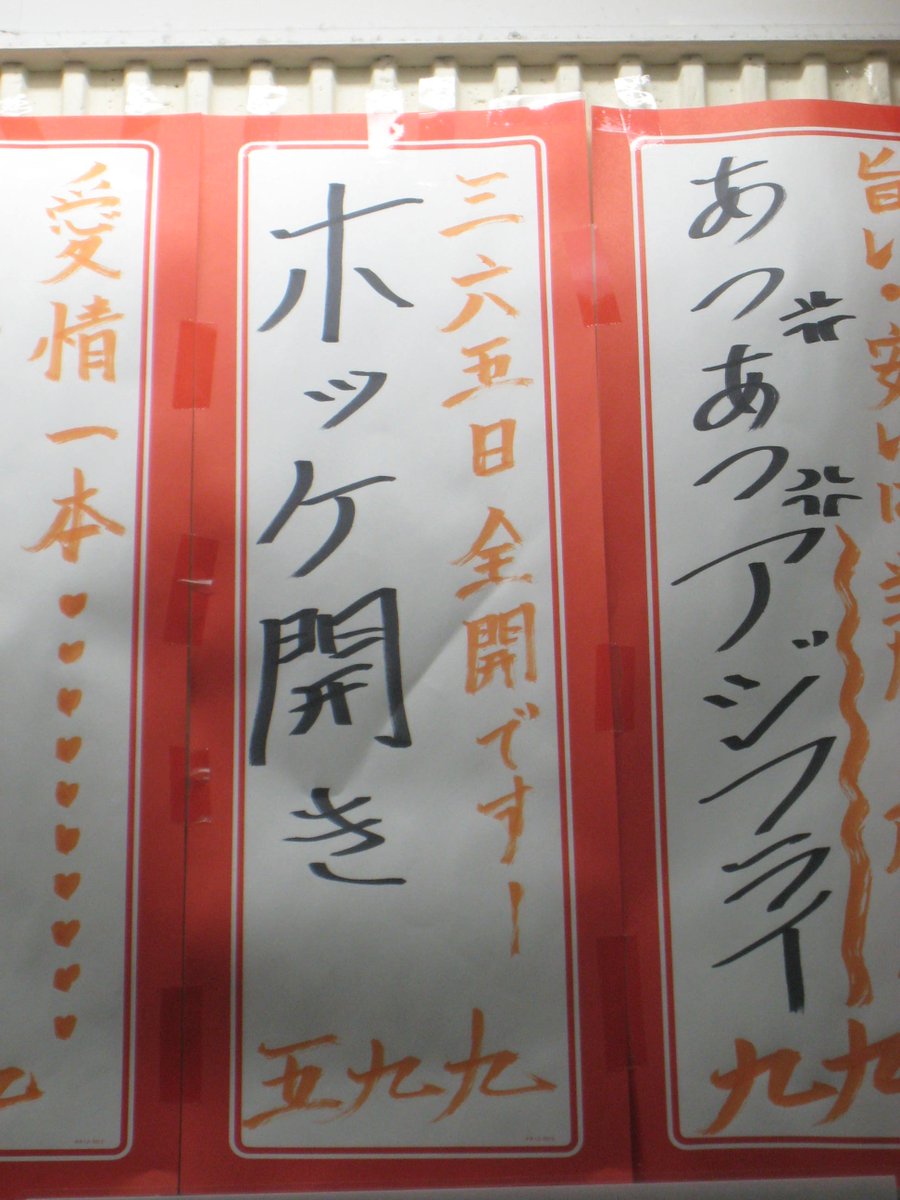 旨い・安いは当
あつあつアジフライ
九九
三六五日全開ですー
ホッケ開き
五九九
愛情一本♥♥♥♥♥♥♥♥♥♥